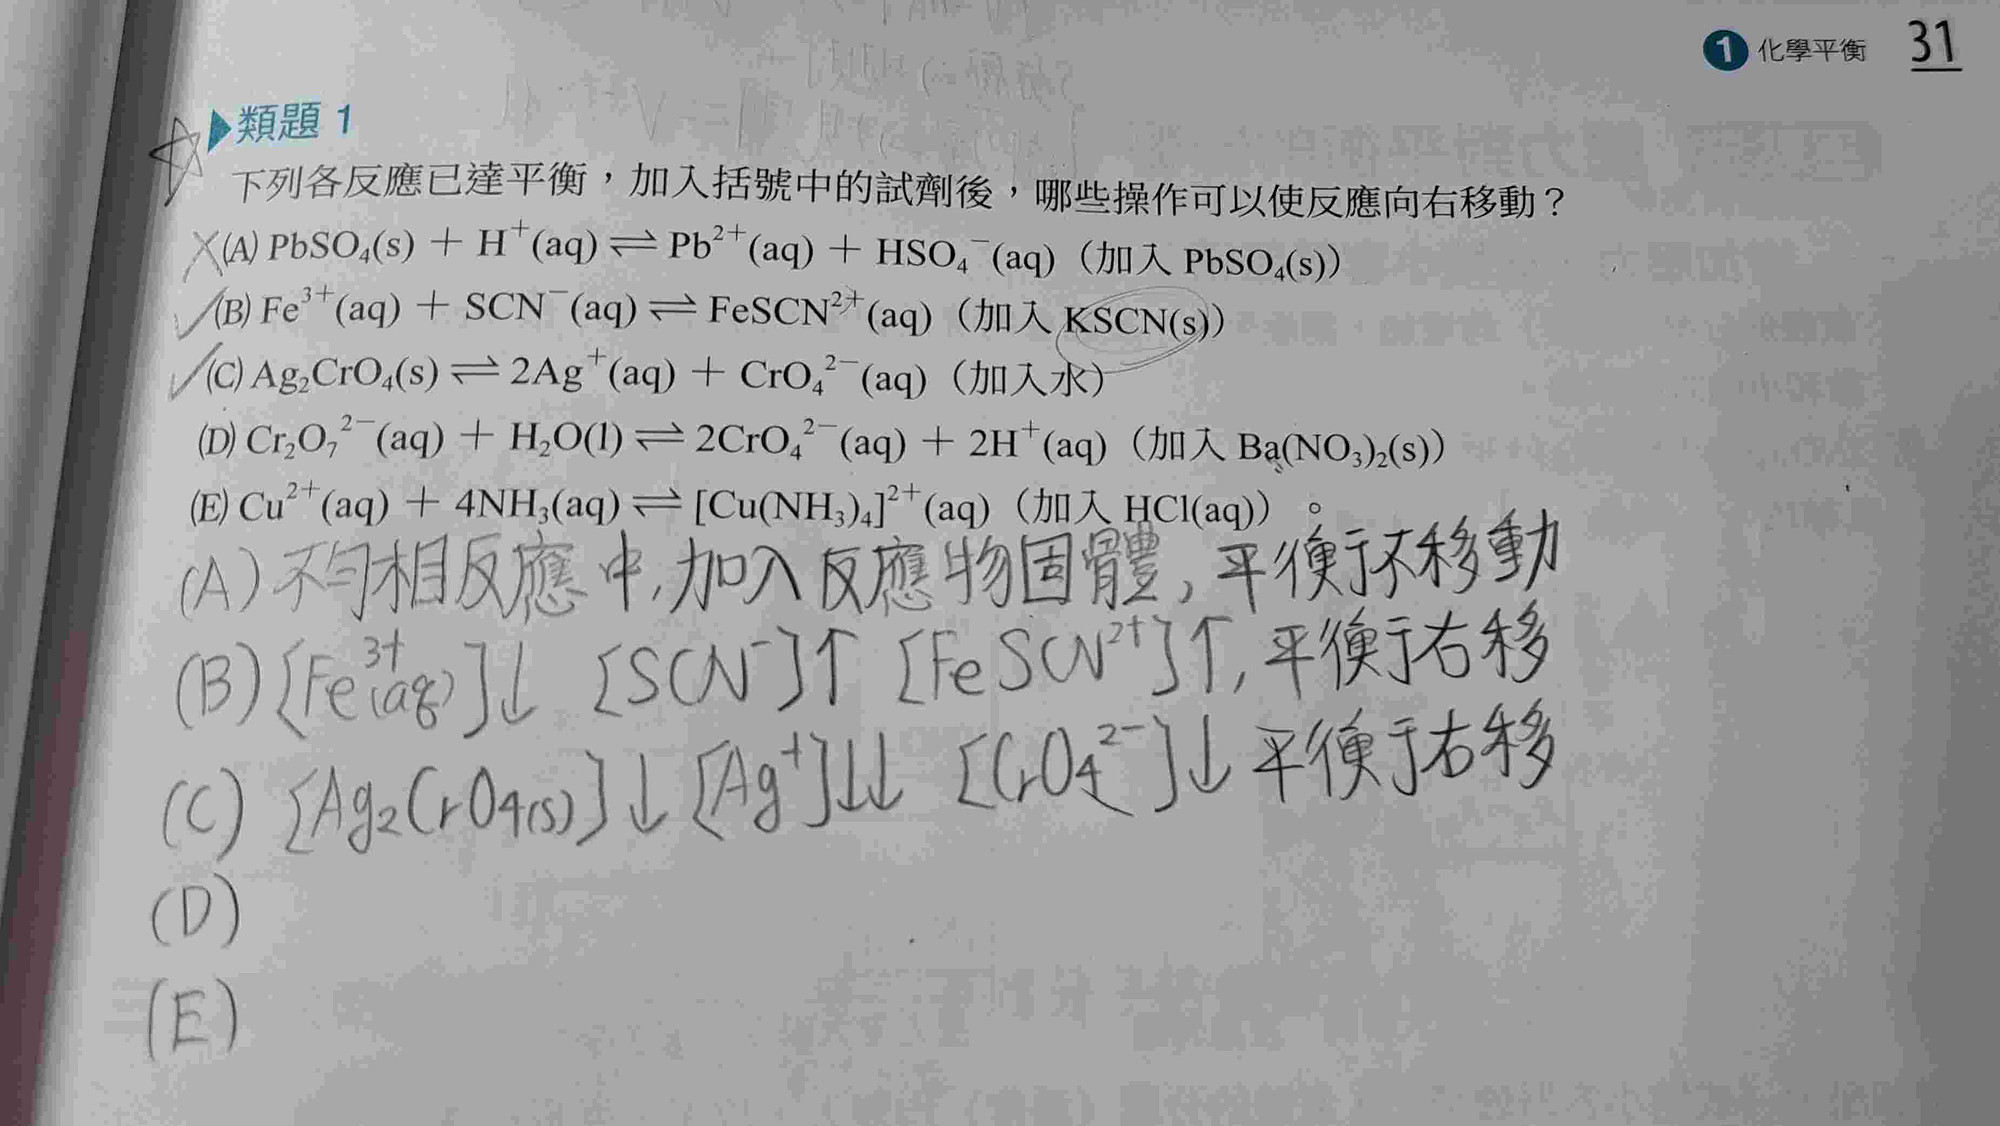 1 化學平衡 31
類題 1
下列各反應已達平衡，加入括號中的試劑後，哪些操作可以使反應向右移動？
(A) PbSO₄(s) + H⁺(aq) ⇌ Pb²⁺(aq) + HSO₄⁻(aq)（加入 PbSO₄(s)）
(B) Fe³⁺(aq) + SCN⁻(aq) ⇌ FeSCN²⁺(aq)（加入 KSCN(s)）
(C) Ag₂CrO₄(s) ⇌ 2Ag⁺(aq) + CrO₄²⁻(aq)（加入水）
(D) Cr₂O₇²⁻(aq) + H₂O(l) ⇌ 2CrO₄²⁻(aq) + 2H⁺(aq)（加入 Ba(NO₃)₂(s)）
(E) Cu²⁺(aq) + 4NH₃(aq) ⇌ [Cu(NH₃)₄]²⁺(aq)（加入 HCl(aq)）。
(A) 不勻相反應中,加入反應物固體,平衡不移動
(B) [Fe³⁺(aq)]↓ [SCN⁻]↑ [FeSCN²⁺]↑,平衡右移
(C) [Ag₂CrO₄(s)]↓ [Ag⁺]↓↓ [CrO₄²⁻]↓ 平衡右移
(D)
(E)